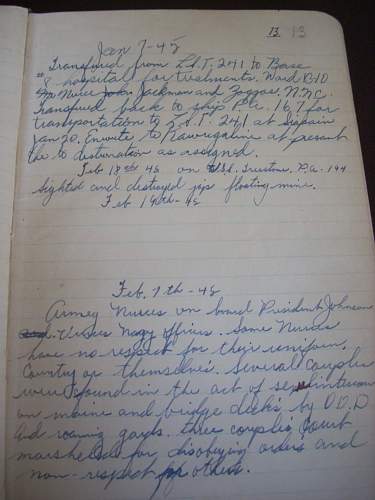 13 13
Jan 7-45
Transfured from L.S.T. 241 to Base
8 hospital for treatments. Ward B10
Nurses Jackman and Zaggas. N.N.C.
Transfured back to ship P.C. 167 for
transportation to L.S.T. 241 at Siapain
Jan 20. Enroute to at present
to desternation as assigned.
Feb 18th 45 on U.S.S. P.A. - 194
Sighted and distroyed jap floating mine.
Feb 19th - 45
Feb. 7th - 45
Armey Nurces on board President Johnson
Verses Navy officers. Some Nurces
have no respect for their uneform.
Country or themselves. Several Couples
were found in the act of sex
on marine and bridge decks by O.O.D
and roaming gards. three couples Court
marsheled for disobeying orders and
non-respect for others.